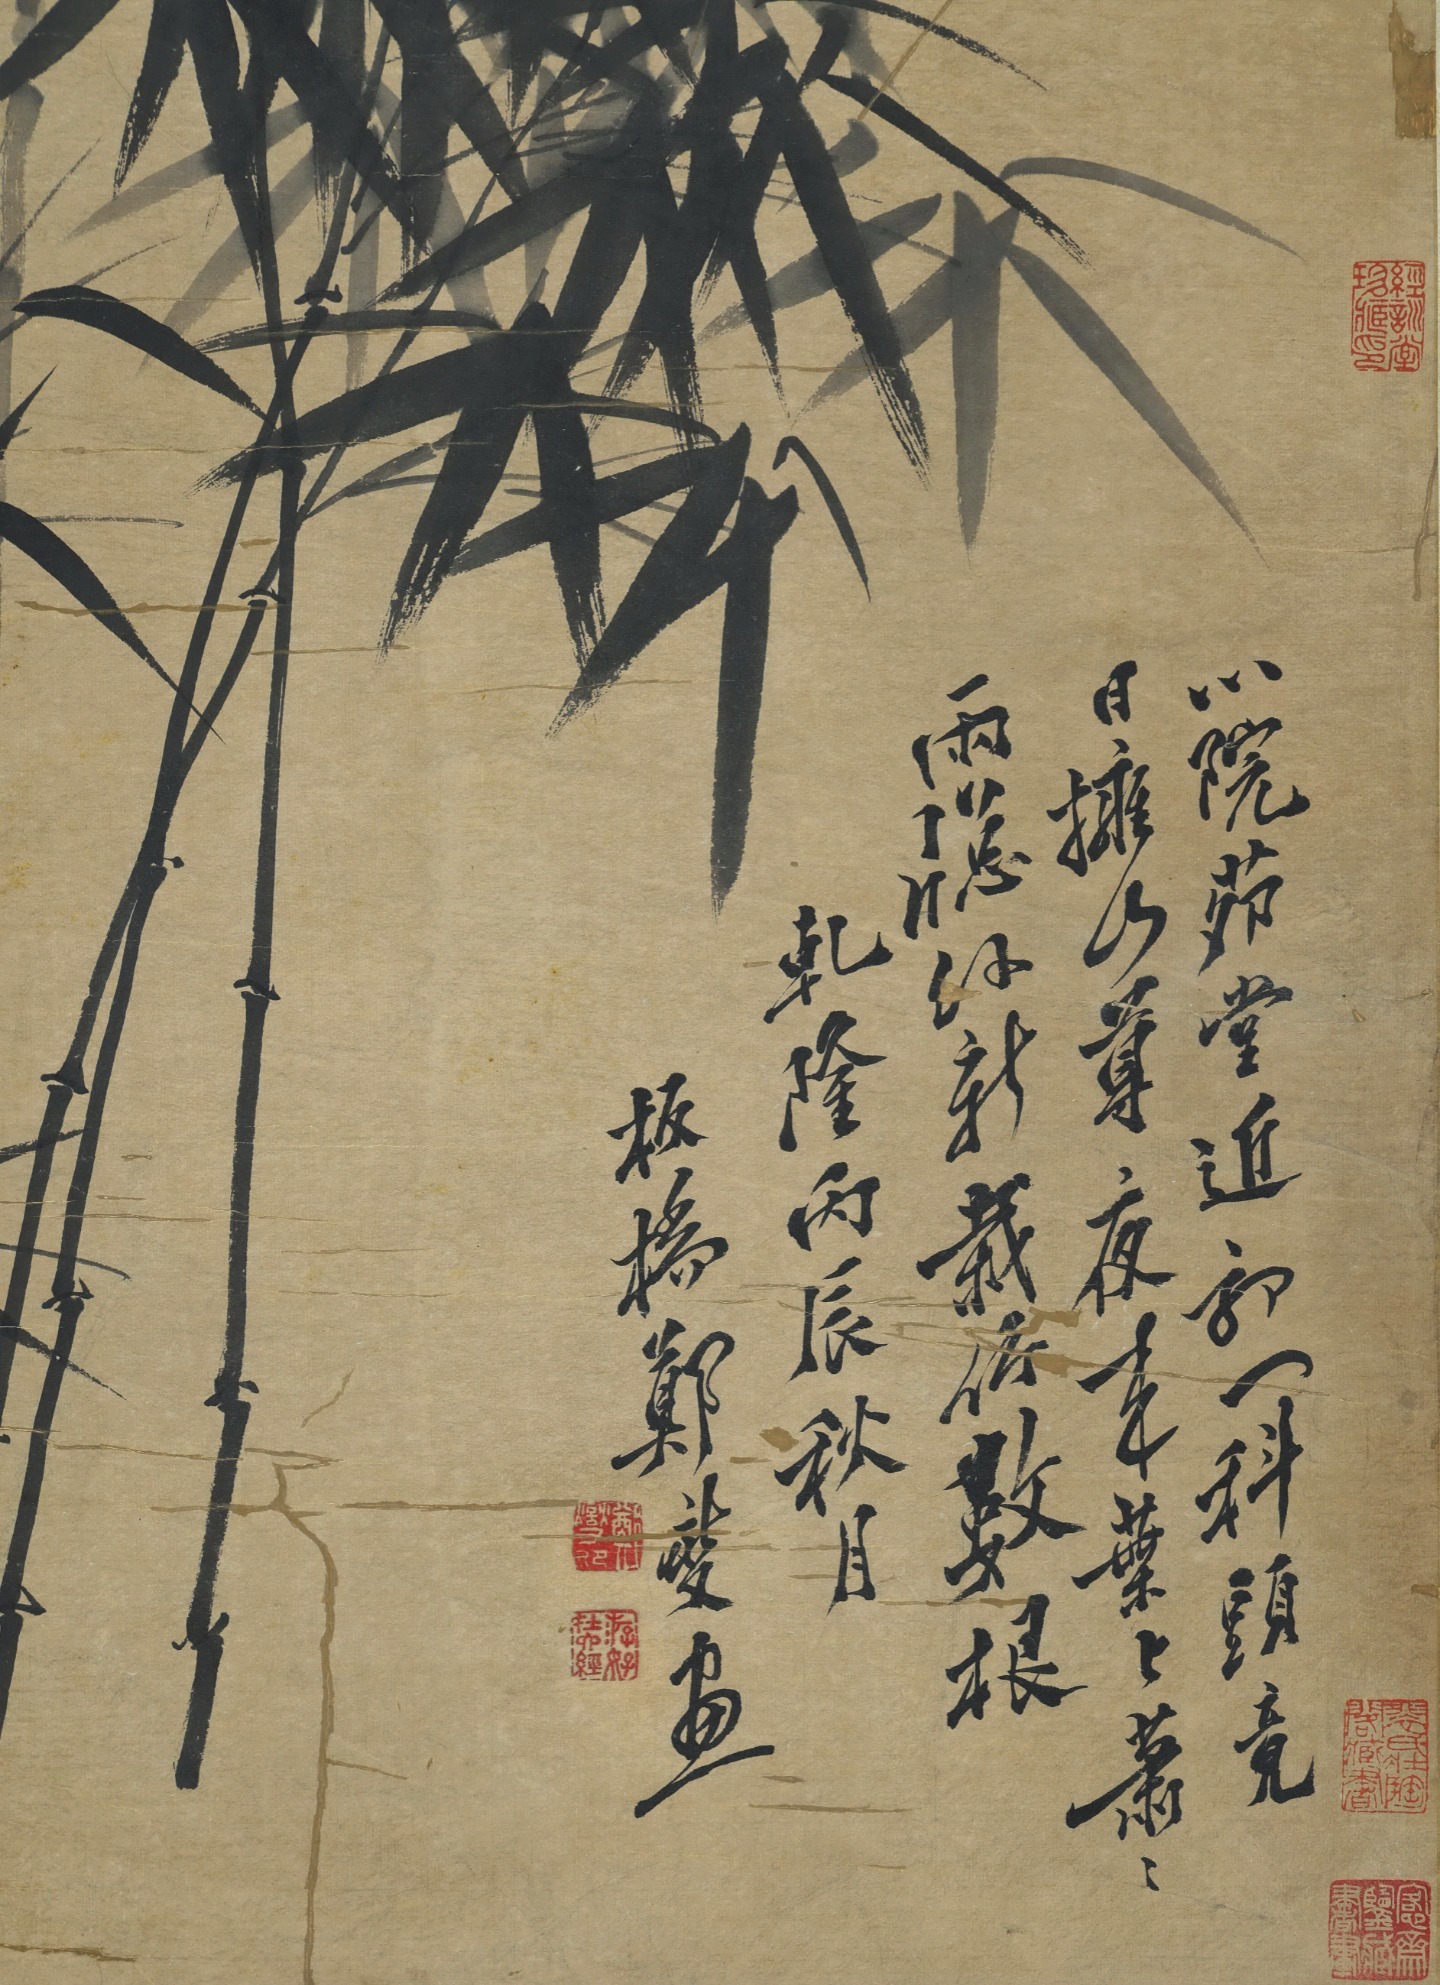 小院茆堂近郭一科頭竟
日擁山尊夜來葉上蕭〻
雨窗外新栽竹數根
乾隆丙辰秋月
板橋鄭燮畫